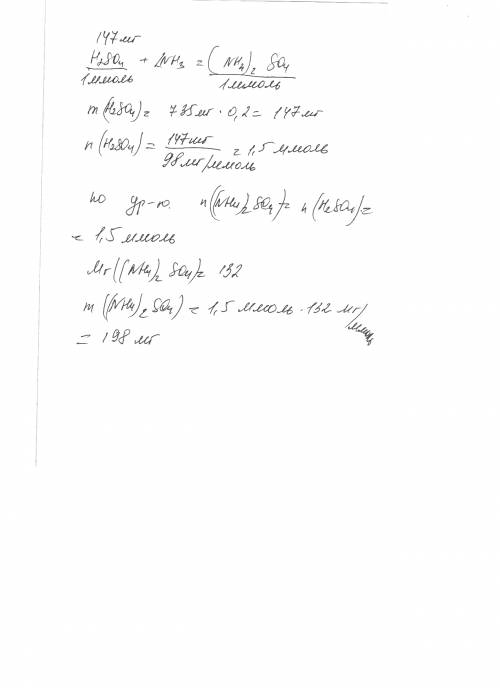 147 мг
H₂SO₄ + 2NH₃ = (NH₄)₂ SO₄
1 ммоль 1 ммоль
m(H₂SO₄) = 735 мг · 0,2 = 147 мг
n(H₂SO₄) = 147 мг / 98 мг/ммоль = 1,5 ммоль
по ур-ю. n((NH₄)₂SO₄) = n(H₂SO₄) =
= 1,5 ммоль
Mr((NH₄)₂ SO₄) = 132
m((NH₄)₂SO₄) = 1,5 ммоль · 132 мг/ммоль
= 198 мг